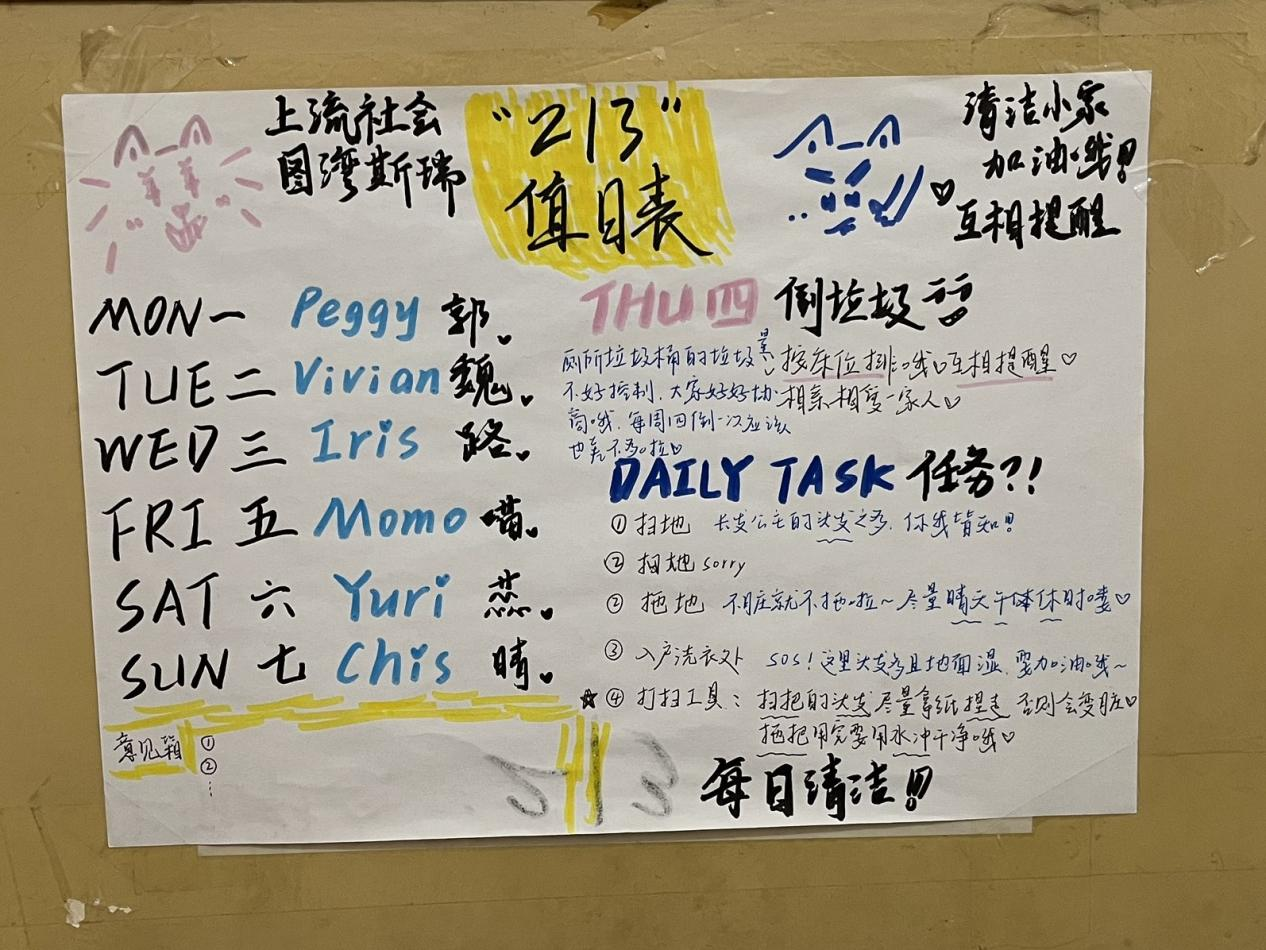 上流社会
图湾斯瑞
"213"
值日表
清洁小家
加油哦!!
互相提醒
MON一 Peggy 郭
TUE二 Vivian 魏
WED三 Iris 路
FRI五 Momo 喵
SAT六 Yuri 蕊
SUN七 Chis 晴
意见箱 ①
②
⋮
THU四 倒垃圾
厕所垃圾桶的垃圾量
不好控制,大家好好协
商哦,每周四倒一次应该
也差不多啦♡
按床位排哦♡互相提醒♡
相亲相爱一家人♡
DAILY TASK 任务?!
① 扫地 长发公主的头发之多,你我皆知!!
② 扫地sorry
② 拖地 不脏就不拖啦~尽量晴天午休时喽♡
③ 入户洗衣处 SOS!这里头发多且地面湿,要加油哦~
☆④ 打扫工具:扫把的头发尽量拿纸捏走 否则会变脏♡
拖把用完要用水冲干净哦♡
每日清洁!!!
213